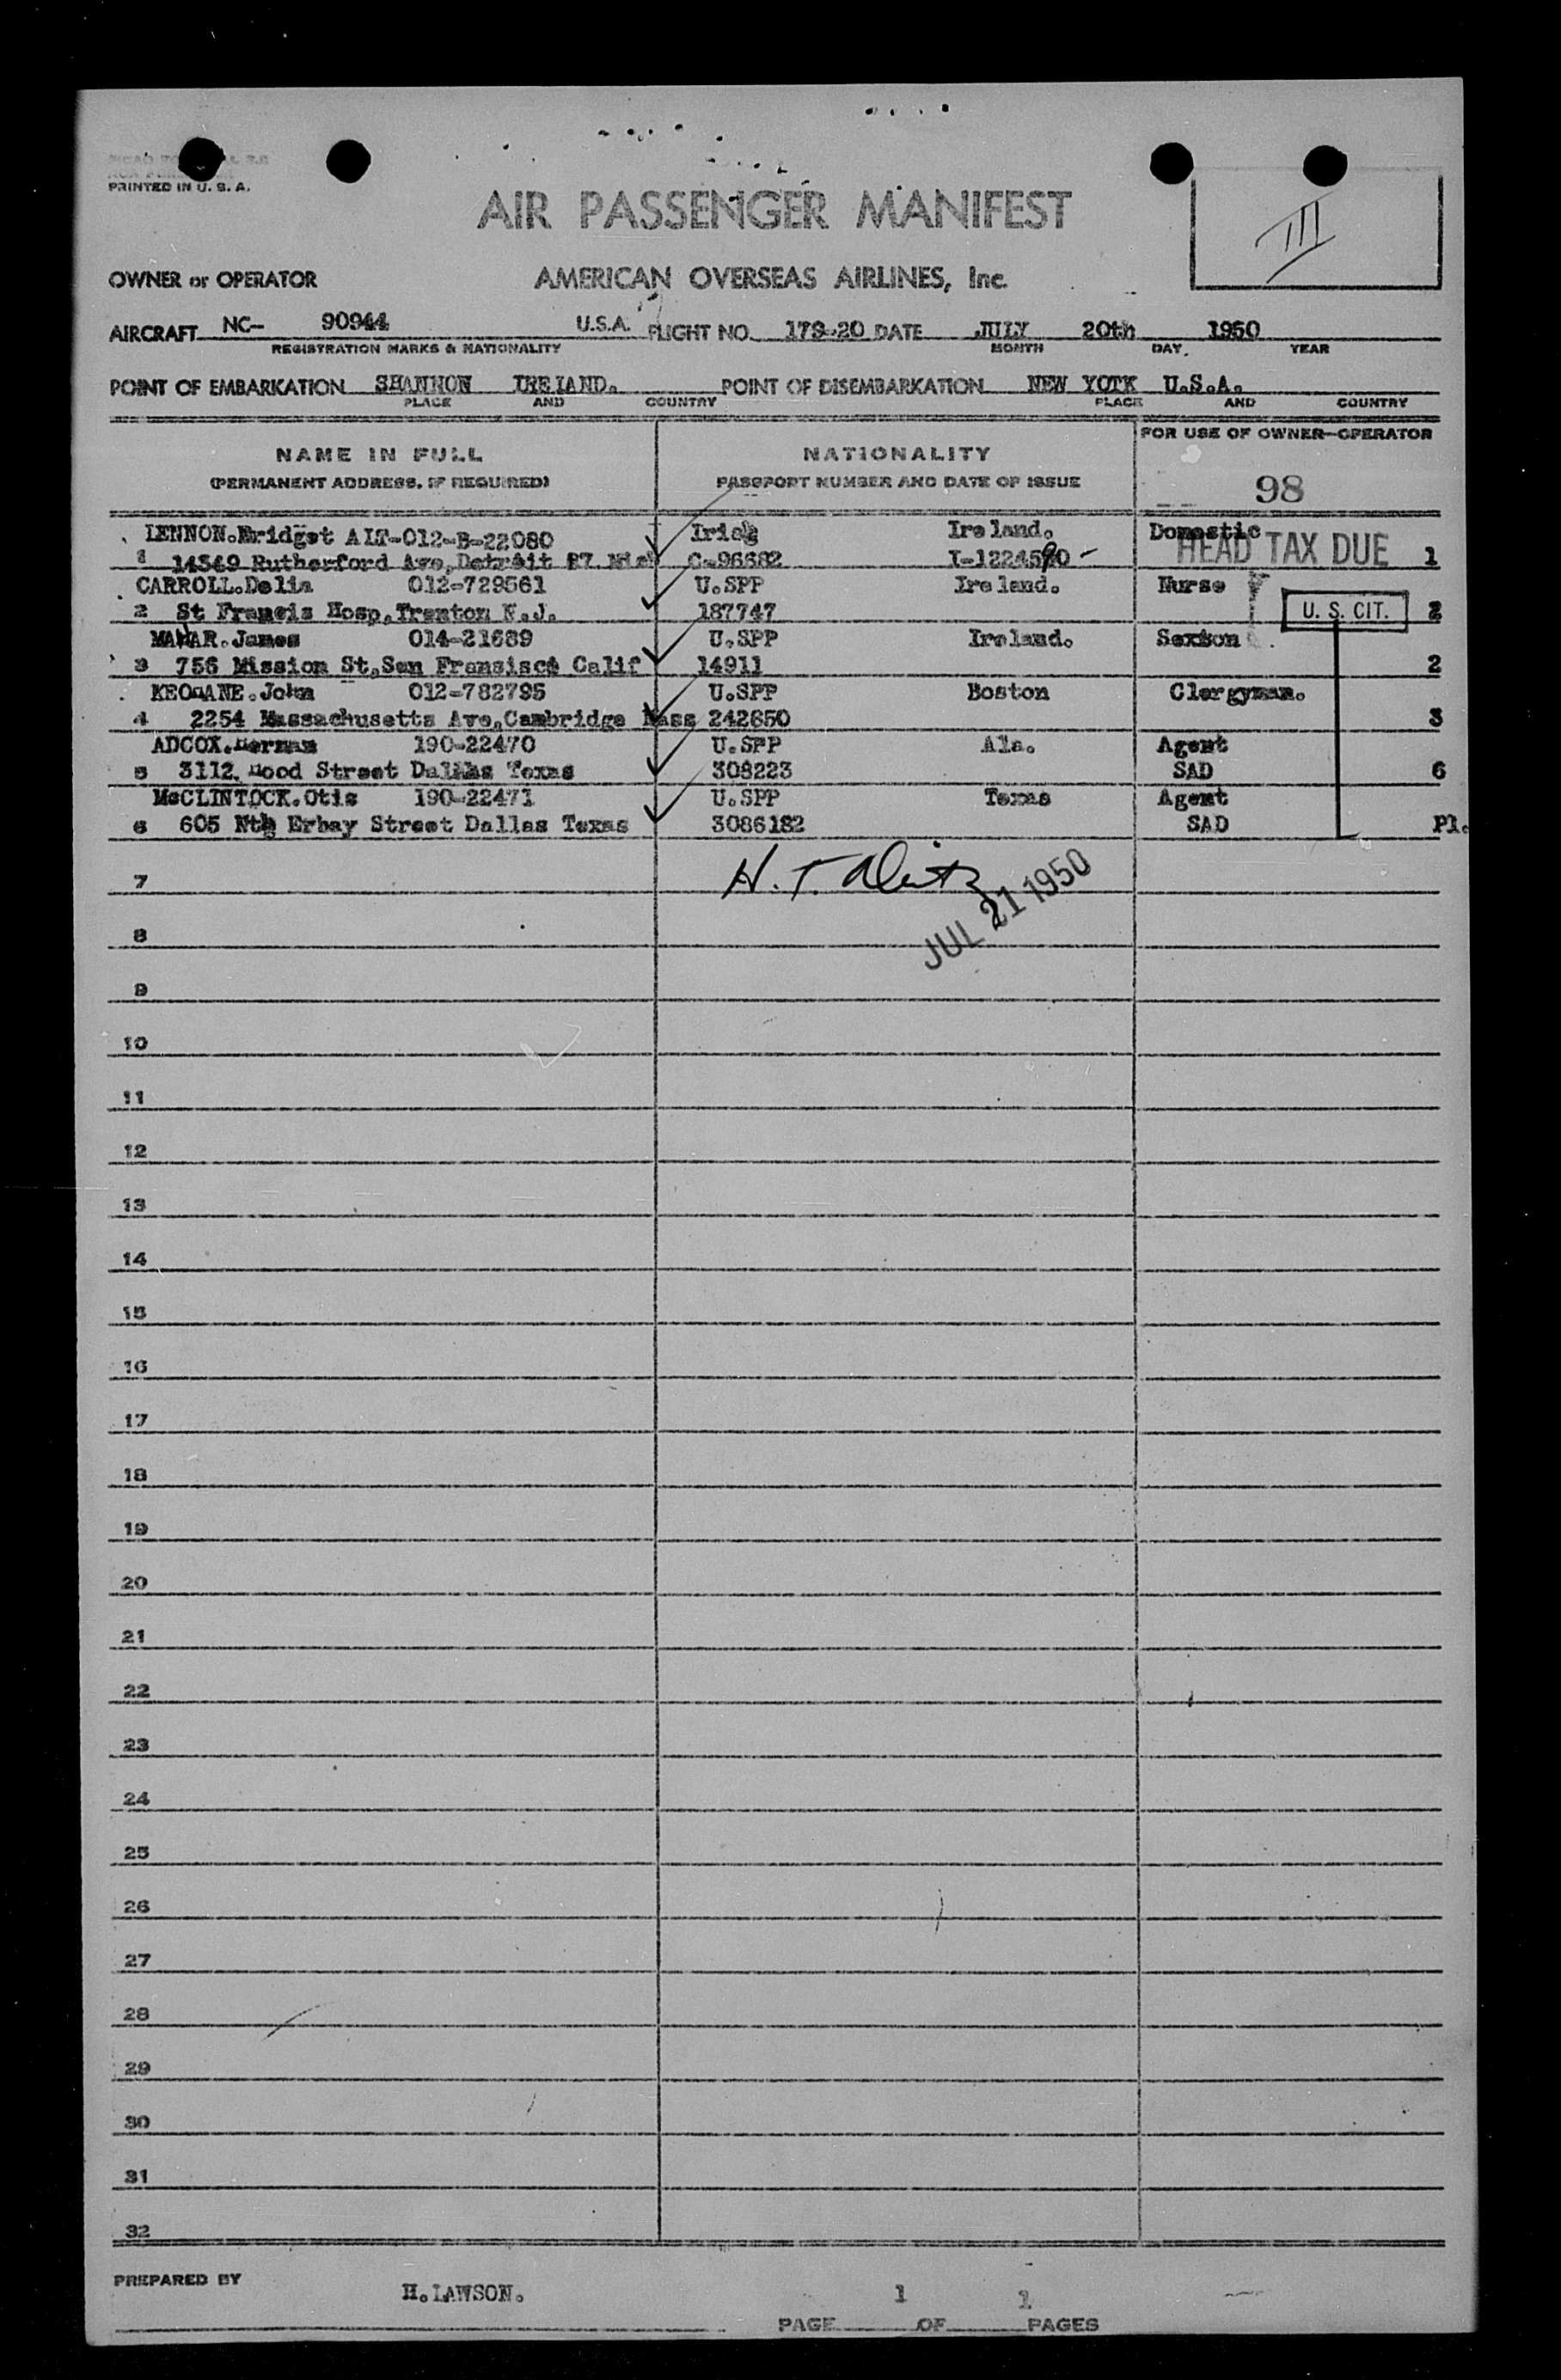 PRINTED IN U. S. A.
AIR PASSENGER MANIFEST
III
OWNER or OPERATOR AMERICAN OVERSEAS AIRLINES, Inc.
AIRCRAFT NC- 90944 U.S.A. FLIGHT NO. 179-20 DATE JULY 20th 1950
REGISTRATION MARKS & NATIONALITY MONTH DAY, YEAR
POINT OF EMBARKATION SHANNON IREIAND. POINT OF DISEMBARKATION NEW YOTK U.S.A.
PLACE AND COUNTRY PLACE AND COUNTRY
NAME IN FULL NATIONALITY FOR USE OF OWNER-OPERATOR
(PERMANENT ADDRESS, IF REQUIRED) PASSPORT NUMBER AND DATE OF ISSUE 98
LENNON.Bridget AIT-012-B-22080 Irish Ireland. Domestic
1 14549 Rutherford Ave,Detroit 27 Mich C-96682 HEAD TAX DUE 1
CARROLL.Delia 012-729561 U.SPP Ireland. Nurse
2 St Francis Hosp,Trenton N.J. 187747 U. S. CIT. 2
MAHAR.James 014-21689 U.SPP Ireland. Sexton
3 756 Mission St,San Fransisco Calif 14911 2
KEOHANE.John 012-782795 U.SPP Boston Clergyman.
4 2254 Massachusetts Ave,Cambridge Mass 242650 3
ADCOX.Herman 190-22470 U.SPP Ala. Agent
5 3112. Hood Street Dallas Texas 308223 SAD 6
McCLINTOCK.Otis 190-22471 U.SPP Texas Agent
6 605 Nth Erbay Street Dallas Texas 3086182 SAD Pl.
7 H. T.
JUL 21 1950
8
9
10
11
12
13
14
15
16
17
18
19
20
21
22
23
24
25
26
27
28
29
30
31
32
PREPARED BY H.LAWSON.
PAGE 1 OF 1 PAGES